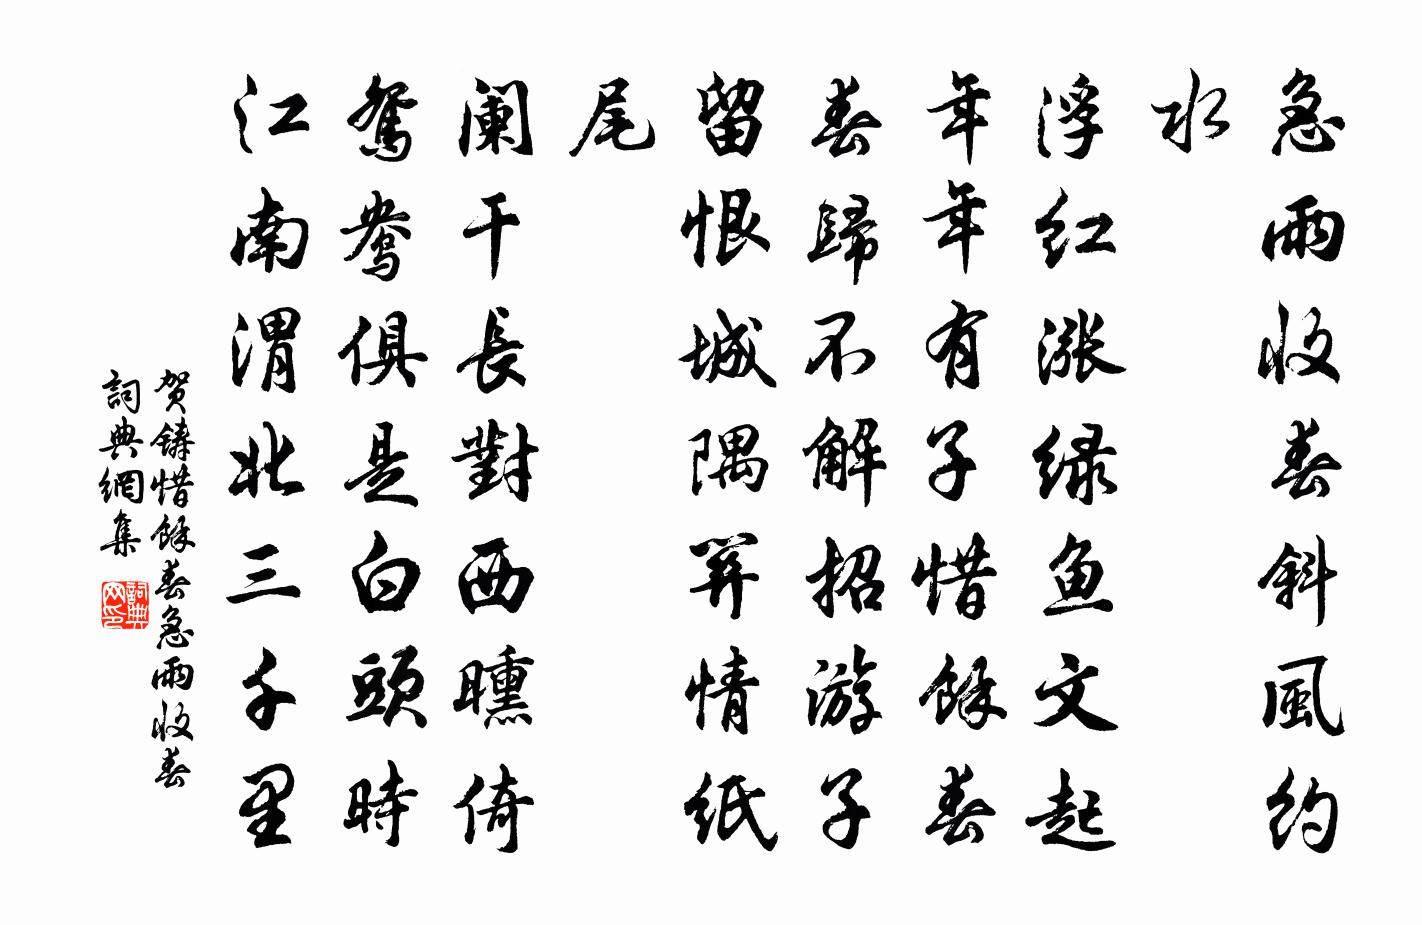 急雨收春斜風約
水
浮红漲緑鱼文起
年年有子惜餘春
春歸不解招游子
留恨城隅關情纸
尾
阑干長對西曛倚
鴛鴦俱是白頭時
江南渭北三千里
贺鑄惜餘春急雨收春
詞典網集
詞典网印